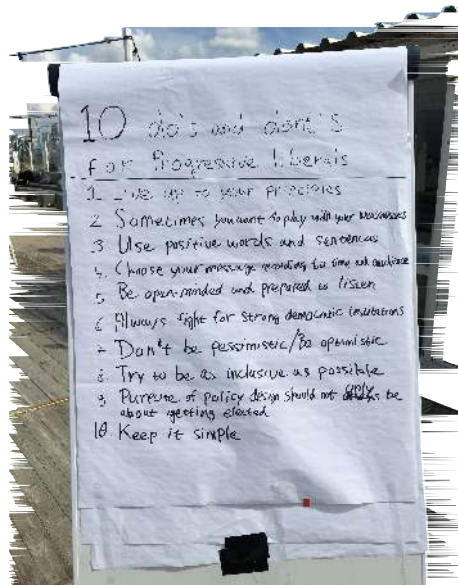 10 do's and dont's
for Progressive liberals
1. Live up to your principles
2 Sometimes you want to play with your weaknesses
3 Use positive words and sentences
4. Choose your message according to time and audience
5 Be open-minded and prepared to listen
6 Always fight for strong democratic institutions
7 Don't be pessimistic/Be optimistic
8 Try to be as inclusive as possible
9 Pursute of policy design should not only be
about getting elected
10 Keep it simple